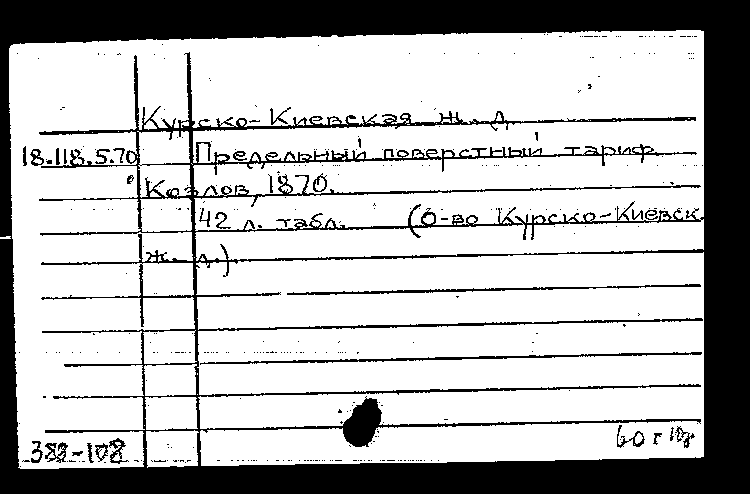 Курско-Киевская ж. д.
18.118.5.70 Предельный поверстный тариф.
Козлов, 1870.
42 л. табл. (О-во Курско-Киевск.
ж. д.).
388-108
60 г